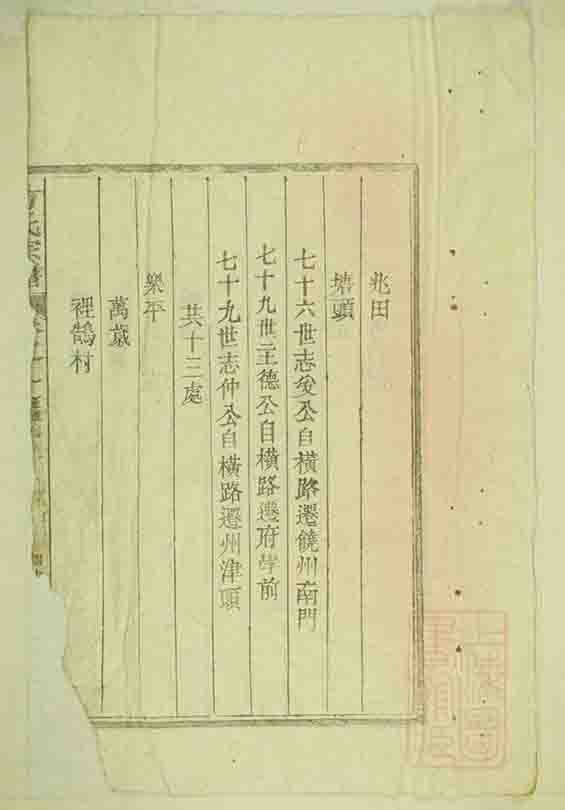 兆田
塘頭
七十六世志癸公自橫路遷饒州南門
七十九世主德公自橫路遷府學前
七十九世志仲公自橫路遷州津頭
共十三處
樂平
萬歲
裡鵠村
氏宗譜